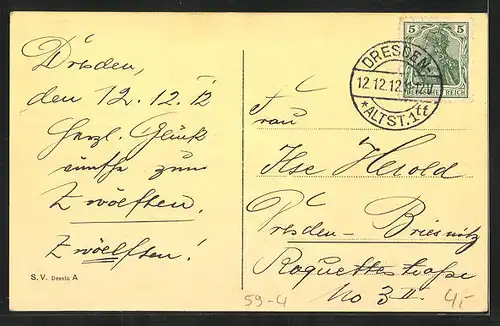 Dresden,
den 12.12.12
Herzl. Glück
wünsche zum
Zwölften.
Zwölften!
S. V. Dessin A
5 5
DEUTSCHES REICH
DRESDEN-
12.12.12.
*ALTST.1tt
Frau
Ilse Herold
Dresden-Briesnitz
Roquettestraße
No 3 II.
59-4
4,-